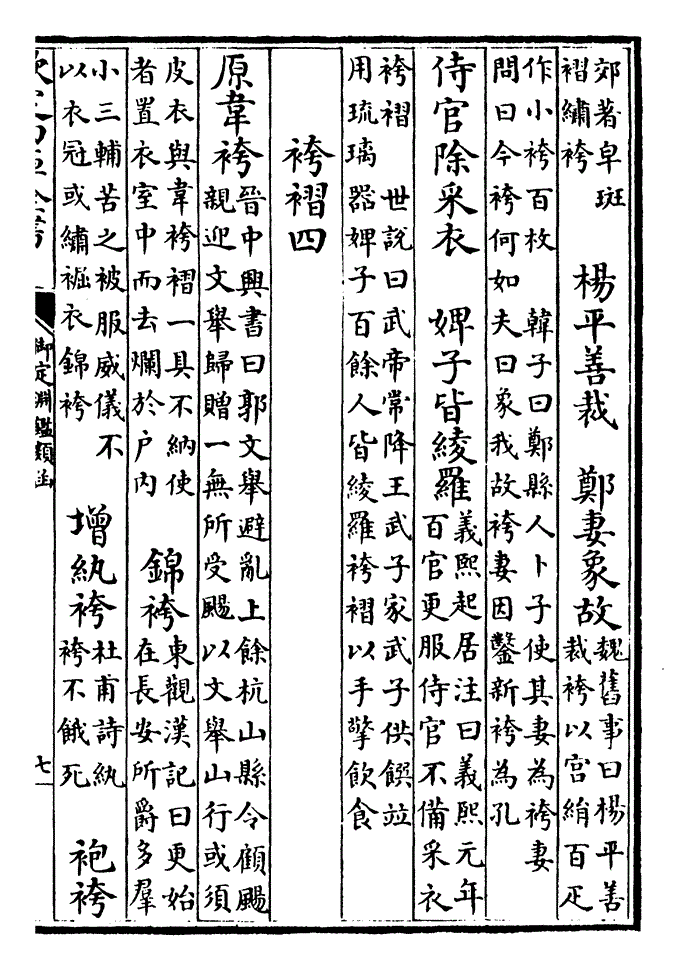 郊著皁斑
褶繡袴
楊平善裁　鄭妻象故
魏舊事曰楊平善
裁袴以宫絹百疋
作小袴百枚　韓子曰鄭縣人卜子使其妻為袴妻
問曰今袴何如夫曰象我故袴妻因鑿新袴為孔
侍官除采衣　婢子皆綾羅
義熙起居注曰義熙元年
百官更服侍官不備采衣
袴褶　世說曰武帝常降王武子家武子供饌竝
用琉璃器婢子百餘人皆綾羅袴褶以手擎飲食
袴褶四
原韋袴
晉中興書曰郭文舉避亂上餘杭山縣令顧颺
親迎文舉歸贈一無所受颺以文舉山行或須
皮衣與韋袴褶一具不納使
者置衣室中而去爛於户内
錦袴
東觀漢記曰更始
在長安所爵多羣
小三輔苦之被服威儀不
以衣冠或繡䘿衣錦袴
增紈袴
杜甫詩紈
袴不餓死
袍袴
欽定四庫全書
御定淵鑑類函
七